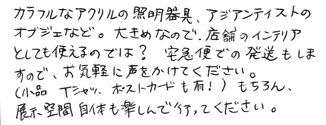 カラフルなアクリルの照明器具、アジアンテイストの
オブジェなど。大きめなので、店舗のインテリア
としても使えるのでは？ 宅急便での発送もしま
すので、お気軽に声をかけてください。
(小品 Tシャツ、ポストカードも有！) もちろん、
展示空間自体も楽しんで行ってください。